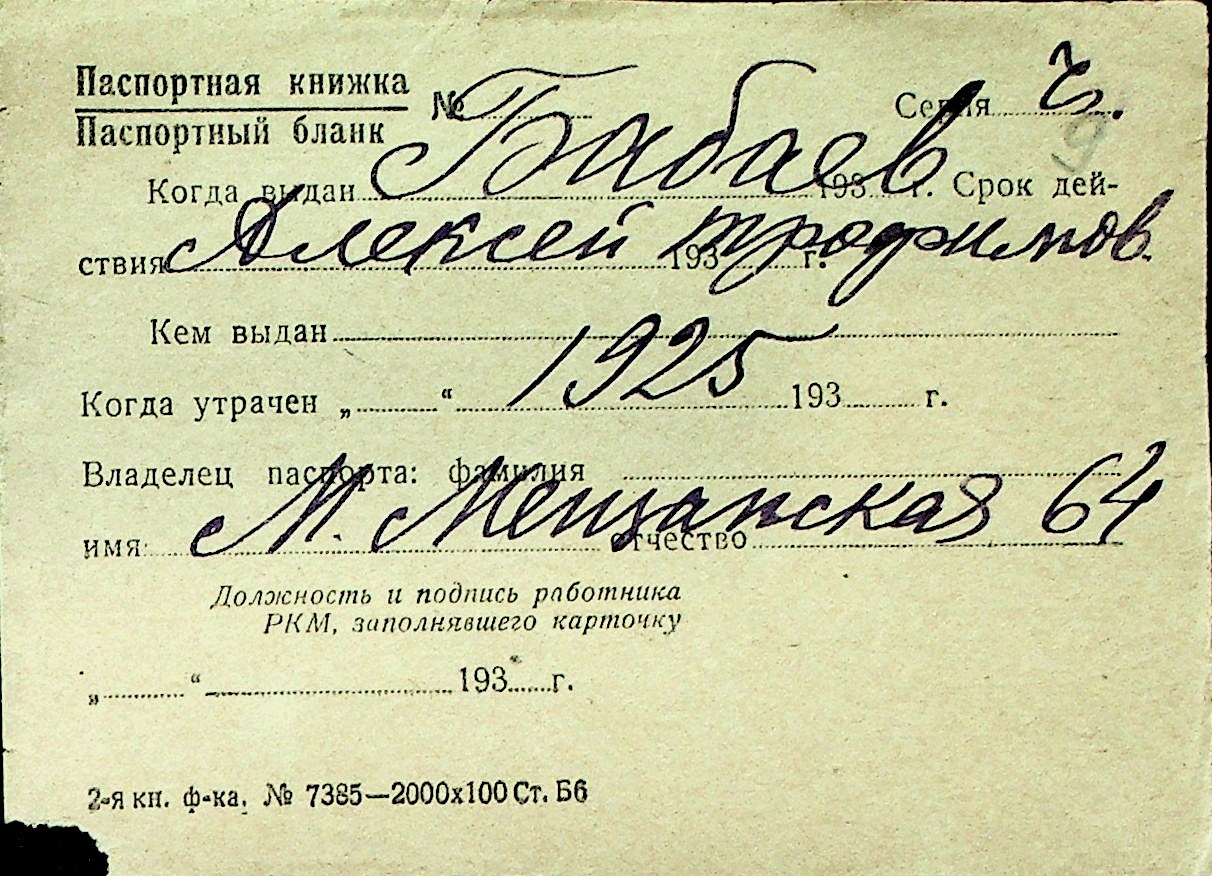 Паспортная книжка
Паспортный бланк
№ Серия ч.
Бабаев
Когда выдан 193 г. Срок дей-
Алексей трофимов.
ствия 193 г.
Кем выдан
1925
Когда утрачен „ “ 193 г.
Владелец паспорта: фамилия
М. Мещанская 64
имя отчество
Должность и подпись работника
РКМ, заполнявшего карточку
„ “ 193 г.
2-я кн. ф-ка. № 7385—2000х100 Ст. Б6